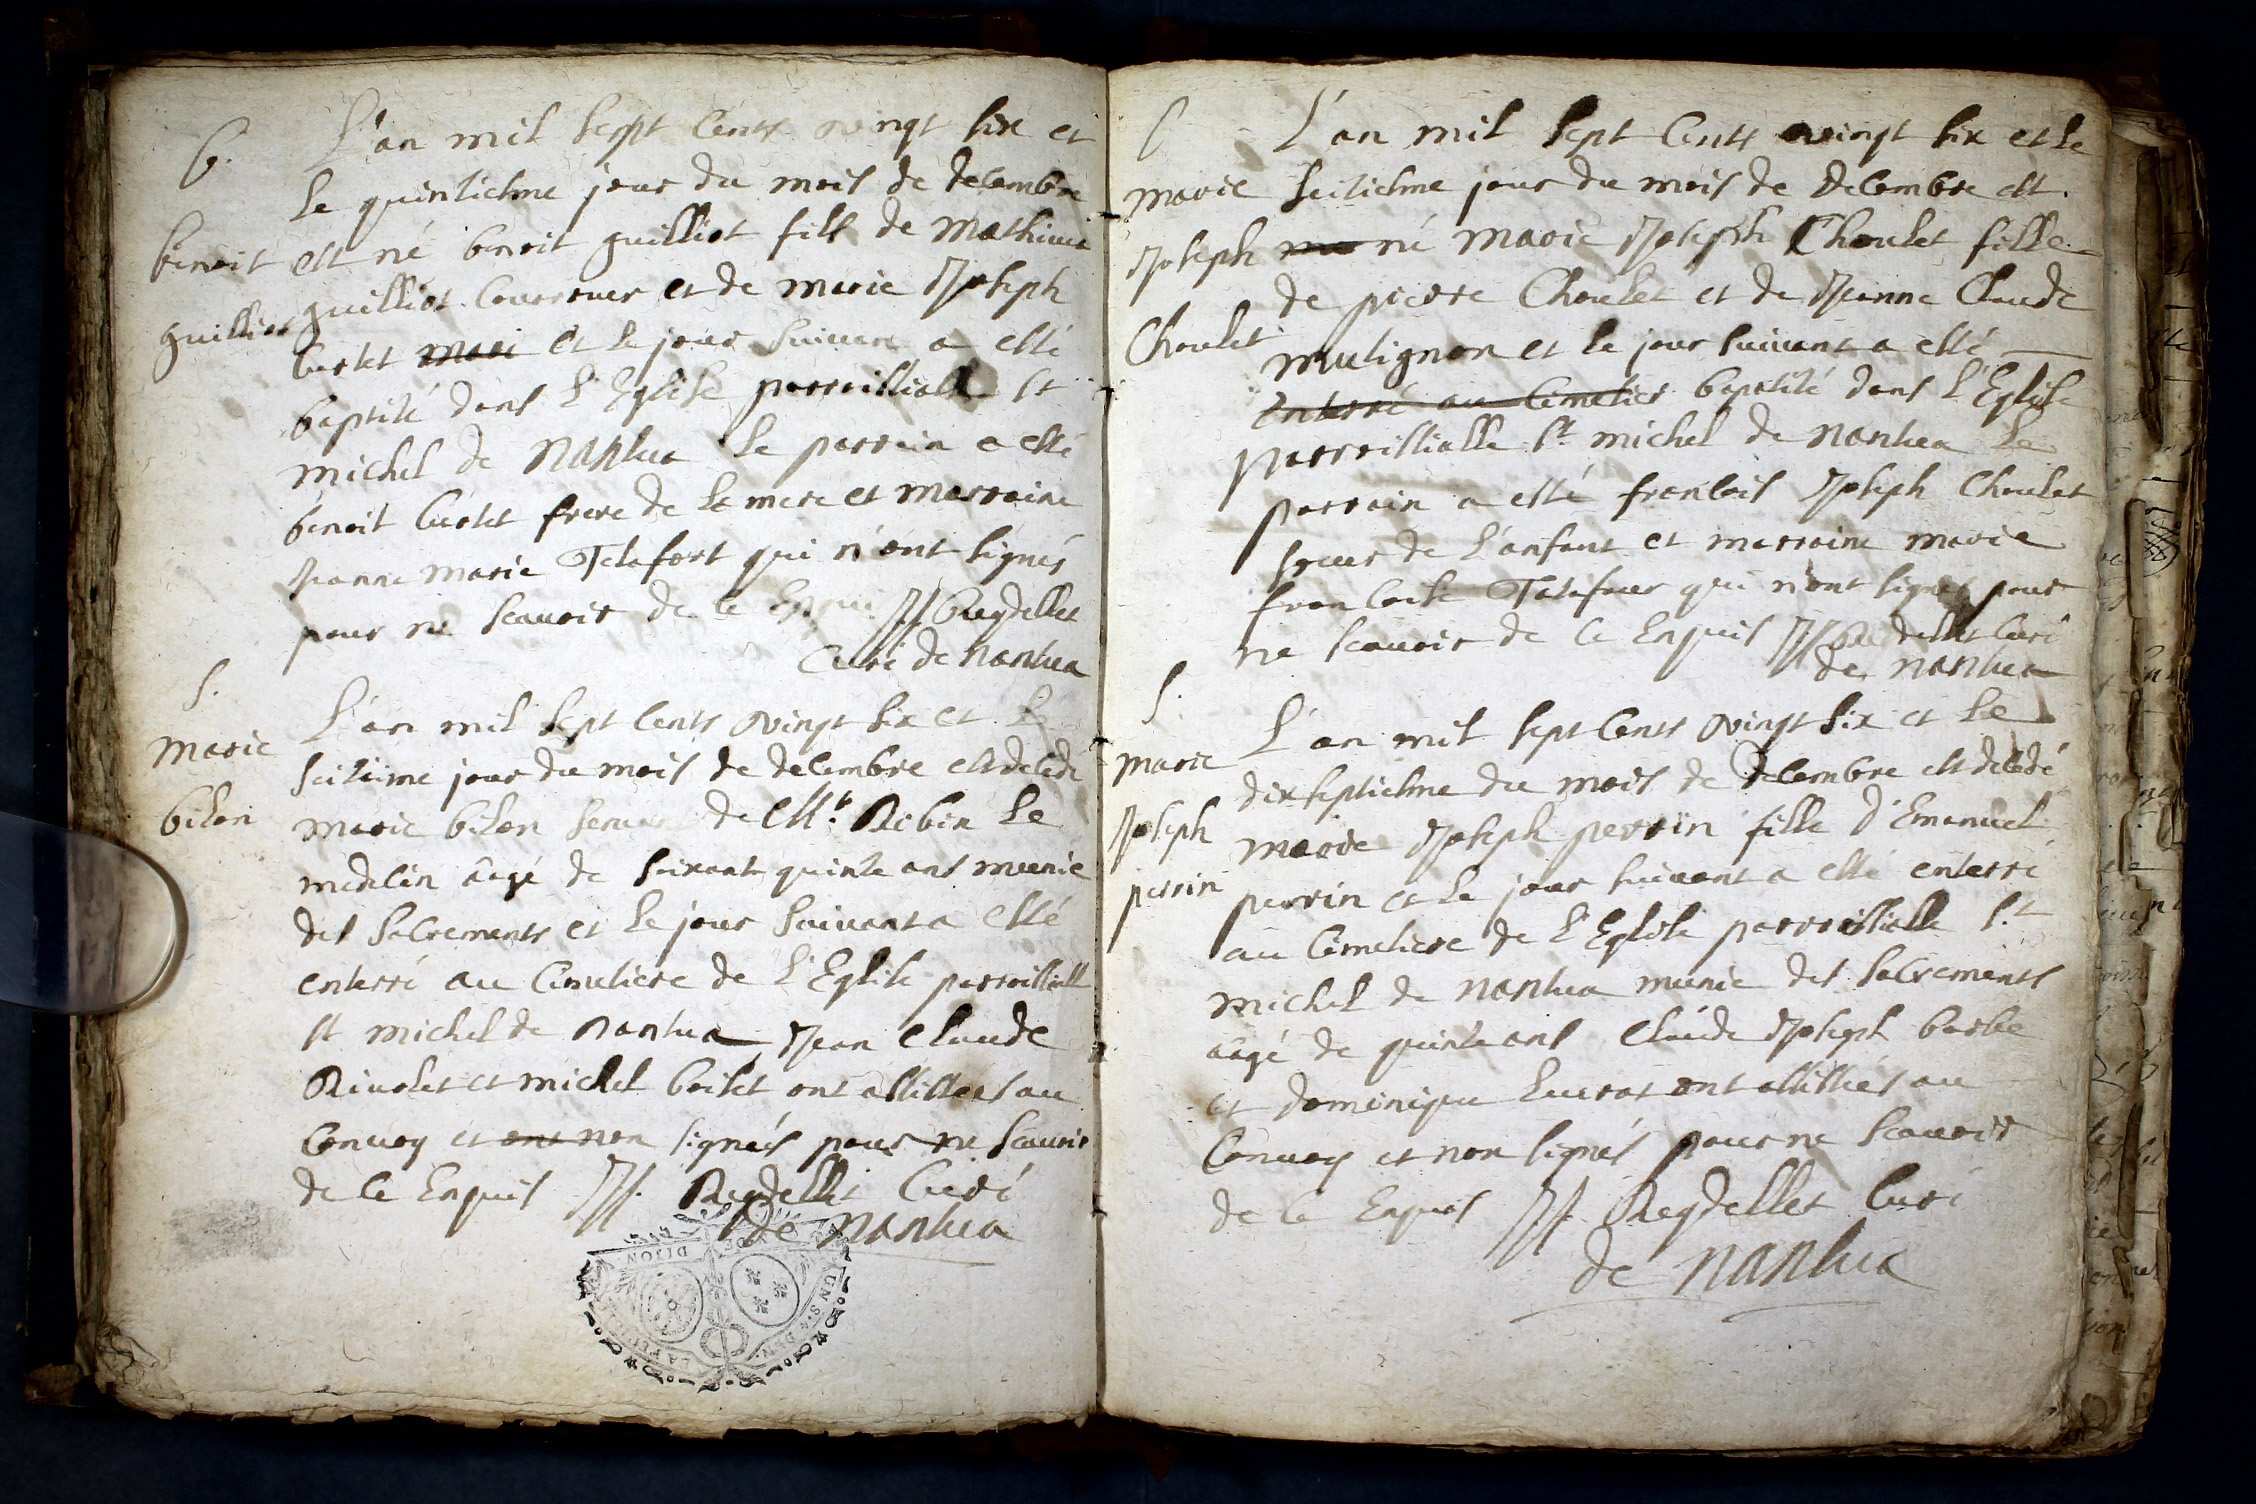 b.
benoit
guilliot
L'an mil sept cents vingt six et
le quinziesme jour du mois de decembre
est né benoit guilliot fils de Mathieu
guilliot Courrour et de marie Joseph
Curtet mari et le jour suivant a esté
baptisé dans l'Eglise parroissialle St
michel de Nantua le parrain a esté
benoit Curtet frere de la mere et marraine
Jeanne marie Telafort qui n'ont signés
pour ne scauoir de ce Enquis JJ. Reydellet
Curé de Nantua
S.
Marie
bilon
L'an mil sept cents vingt six et le
seiziéme jour du mois de decembre est decedé
marie bilon de Mr. Robin le
medecin aagé de soixante quinze ans munie
des sacrements et le jour suivant a esté
enterré au Cimetiere de l'Eglise parroissialle
St michel de Nantua Jean Claude
Rivolet et michel boilet ont assistées au
Convoy et ont non signés pour ne scauoir
de ce Enquis JJ. Reydellet Curé
de Nantua
DIJON
marie
Joseph
Choulet
L'an mil sept cents vingt six et le
seiziesme jour du mois de decembre est
né marie Joseph Choulet fille
de pierre Choulet et de Jeanne Claude
mulignon et le jour suivant a esté
enterré au Cimetier baptisé dans l'Eglise
parroissialle St. michel de Nantua le
parrain a esté francois Joseph Choulet
soeur de l'anfant et marraine marie
francoise Telafour qui n'ont signés pour
ne scauoir de ce Enquis JJ Reydellet Curé
de Nantua
S.
Marie
Joseph
perrin
L'an mil sept cents vingt six et le
dix septiesme du mois de decembre est decedé
marie Joseph perrin fille d'Emanuel
perrin et le jour suivant a esté enterré
au Cimetiere de l'Eglise parroissialle St.
michel de Nantua munie des sacrements
aagé de quinze ans Claude Joseph barbe
et dominique Luirat ont assistés au
Convoy et non signés pour ne scauoir
de ce Enquis JJ. Reydellet Curé
de Nantua